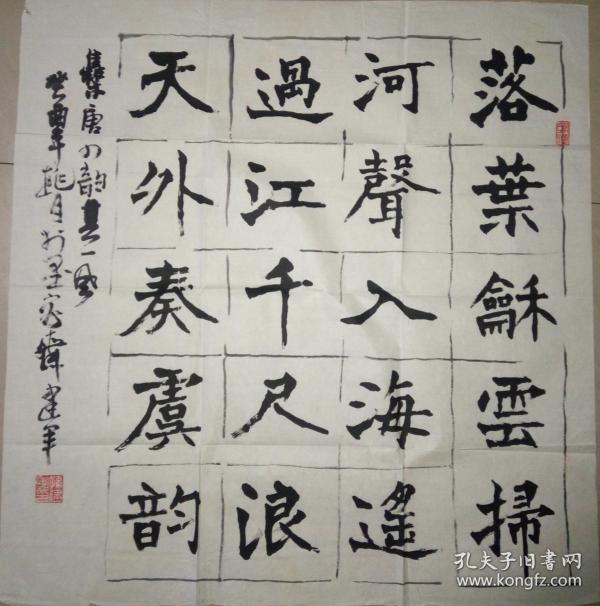 落葉龢雲掃
河聲入海遙
過江千尺浪
天外奏虞韵
集唐人韵其一風
癸酉年桃月於墨
韓建軍
孔夫子旧书网
www.kongfz.com